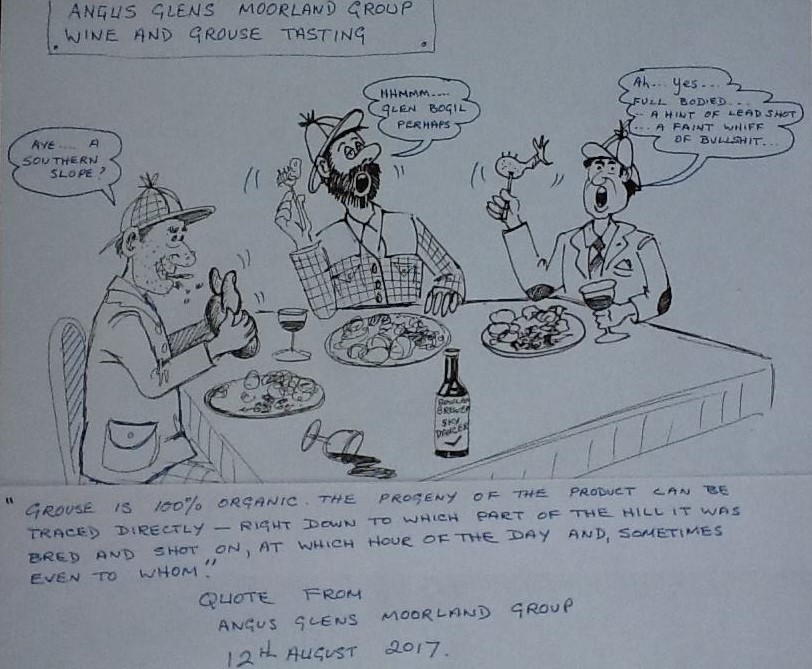 ANGUS GLENS MOORLAND GROUP
WINE AND GROUSE TASTING
AYE.... A
SOUTHERN
SLOPE?
HHMMM....
GLEN BOGIL
PERHAPS
Ah... Yes...
FULL BODIED...
.. A HINT OF LEAD SHOT
... A FAINT WHIFF
OF BULLSHIT...
BREWER
SKY
DANCER
"GROUSE IS 100% ORGANIC. THE PROGENY OF THE PRODUCT CAN BE
TRACED DIRECTLY – RIGHT DOWN TO WHICH PART OF THE HILL IT WAS
BRED AND SHOT ON, AT WHICH HOUR OF THE DAY AND, SOMETIMES
EVEN TO WHOM."
QUOTE FROM
ANGUS GLENS MOORLAND GROUP
12TH AUGUST 2017.